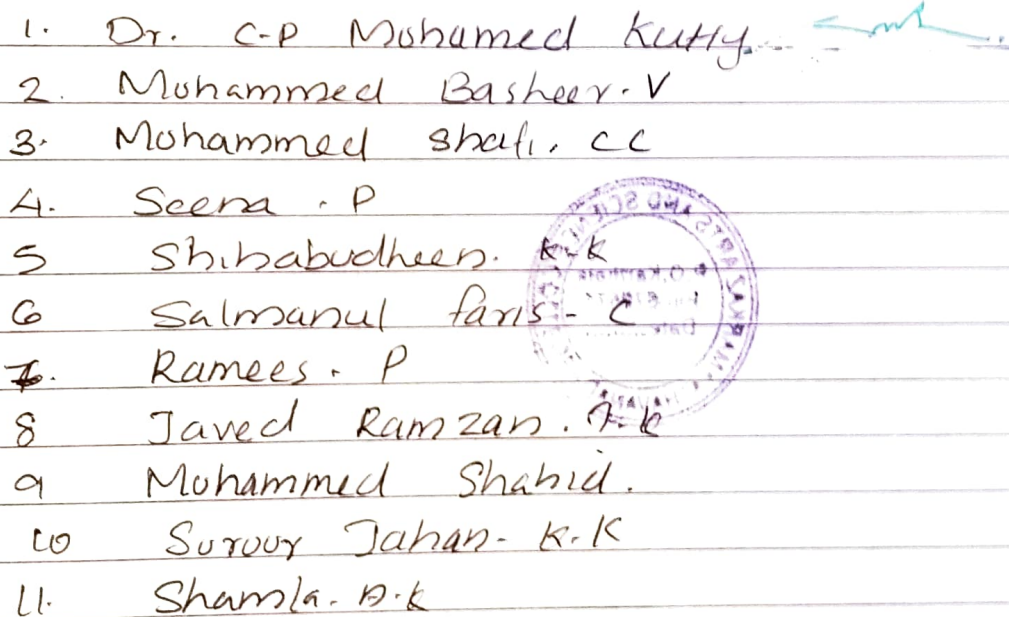 1. Dr. C-P Mohamed Kutty
2. Mohammed Basheer. V
3. Mohammed Shafi. CC
4. Seena . P
5 Shihabudheen. K-K
6 Salmanul faris - C
7. Ramees. P
8 Javed Ramzan.
9 Mohammed Shahid.
10 Suroor Jahan- K.K
11. Shamla.